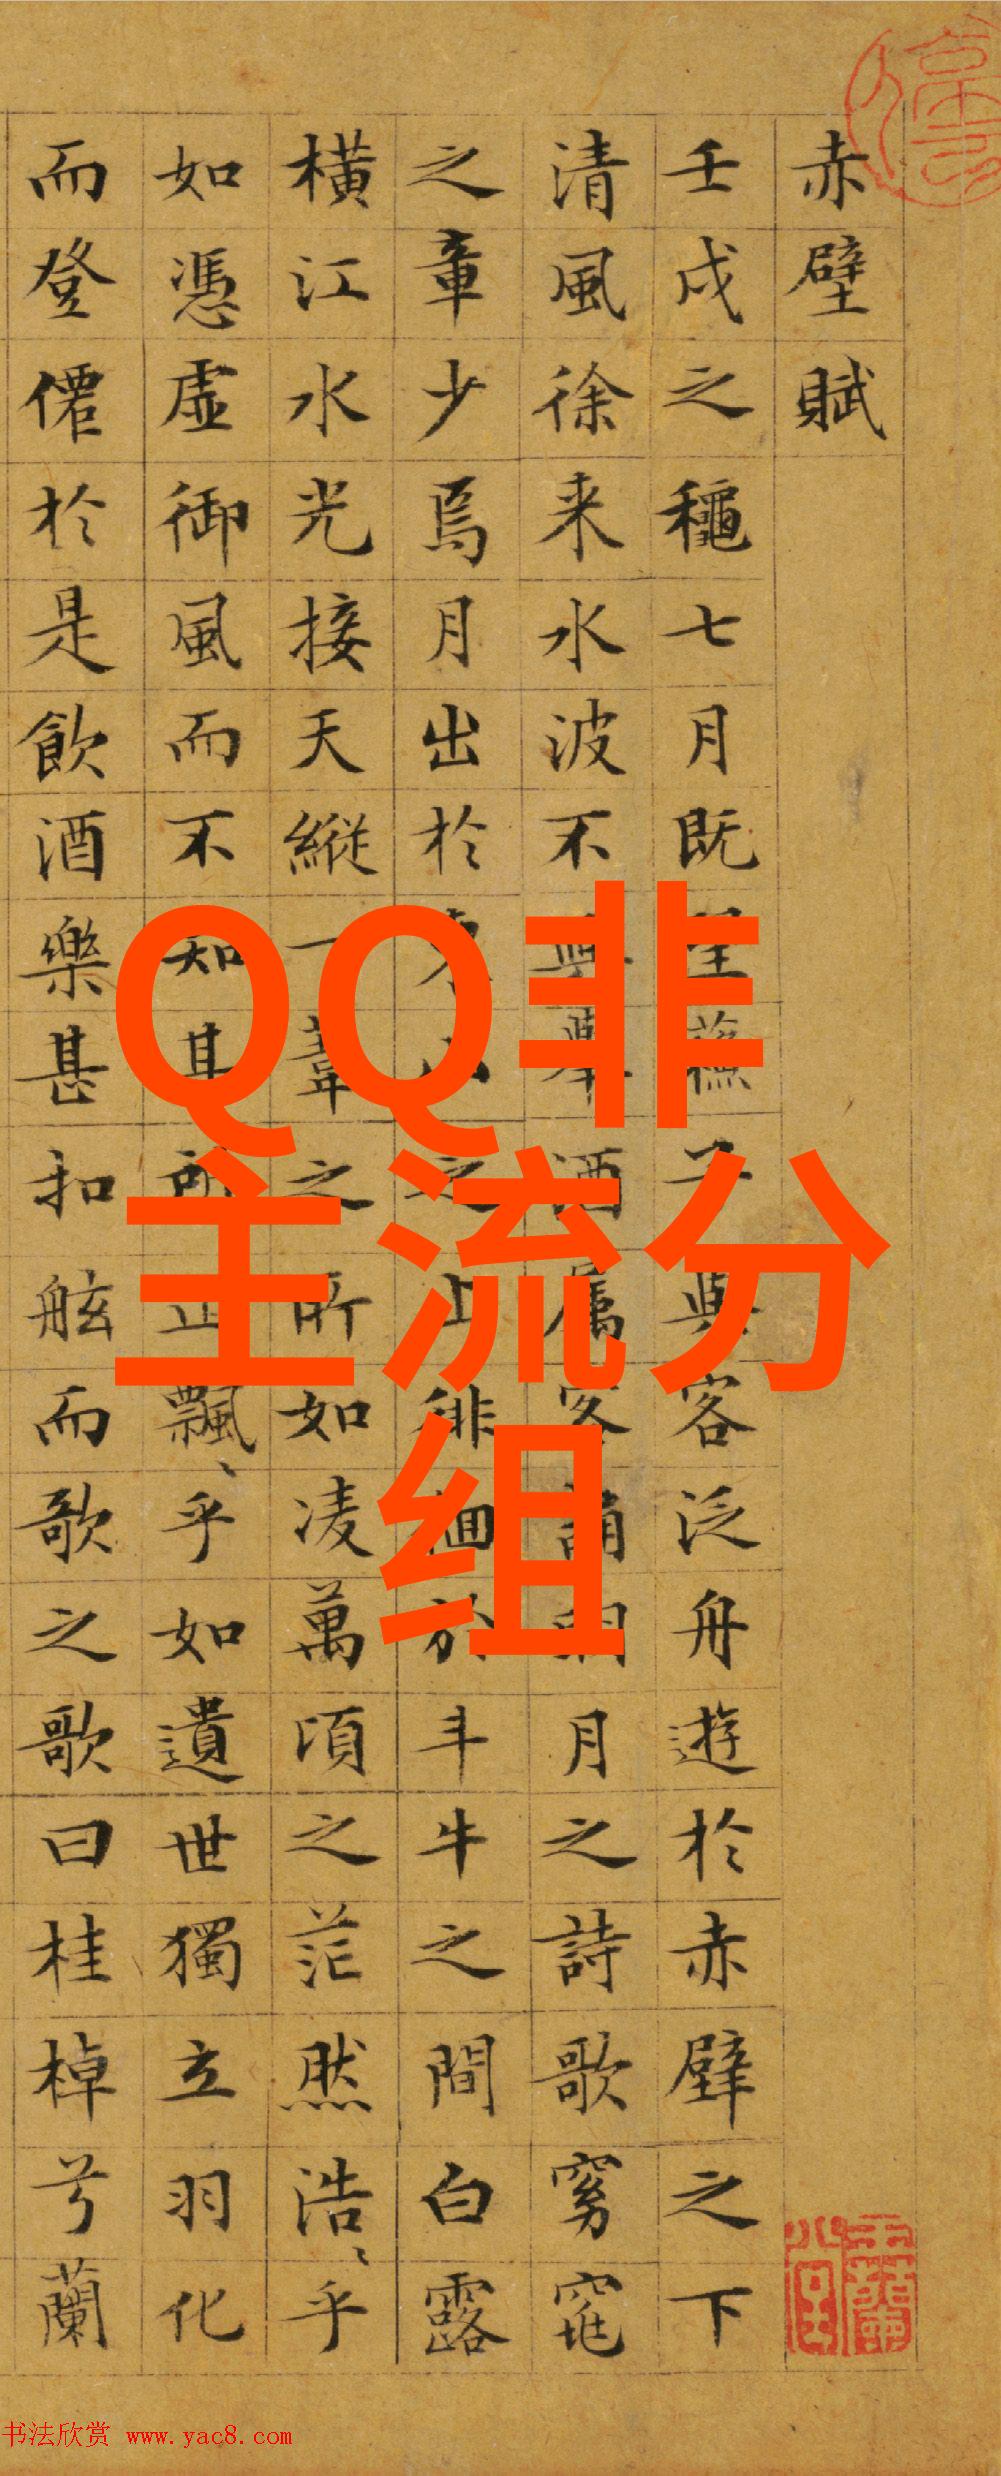 赤壁賦
壬戌之龝七月既望蘓子與客泛舟遊於赤壁之下
清風徐来水波不興舉酒屬客誦明月之詩歌窈窕
之章少焉月出於東山之上徘徊於斗牛之間白露
橫江水光接天縱一葦之所如凌萬頃之茫然浩〻乎
如憑虛御風而不知其所止飄〻乎如遺世獨立羽化
而登僊於是飲酒樂甚扣舷而歌之歌曰桂棹兮蘭
QQ非
主流分
组
书法欣赏 www.yac8.com